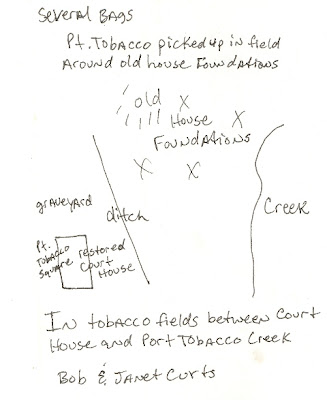 Several Bags
Pt. Tobacco picked up in field
Around old house Foundations
old X
House X
Foundations
X X
graveyard
ditch
Creek
Pt.
Tobacco
Square
restored
Court
House
In tobacco fields between Court
House and Port Tobacco Creek
Bob & Janet Curts